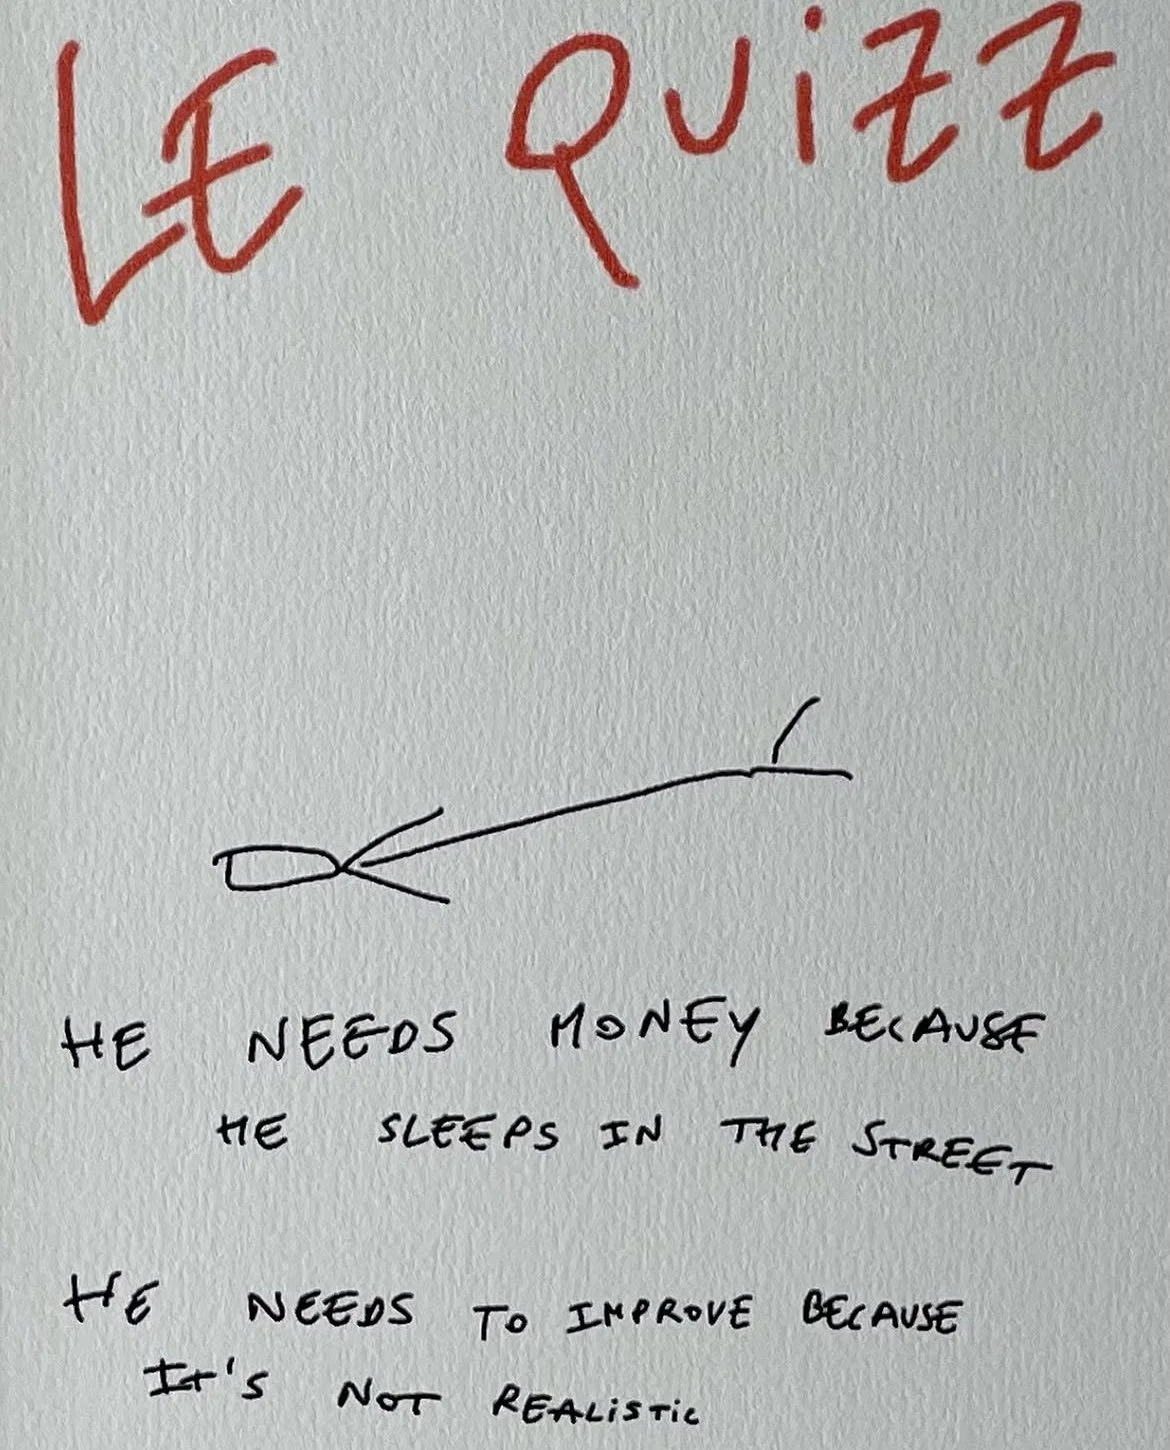 LE QUiZZ
HE NEEDS MONEY BECAUSE
HE SLEEPS IN THE STREET
HE NEEDS TO IMPROVE BECAUSE
It's NOT REALiSTiC